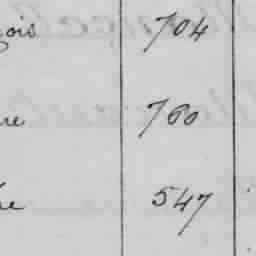 gois 704
re 760
re 547